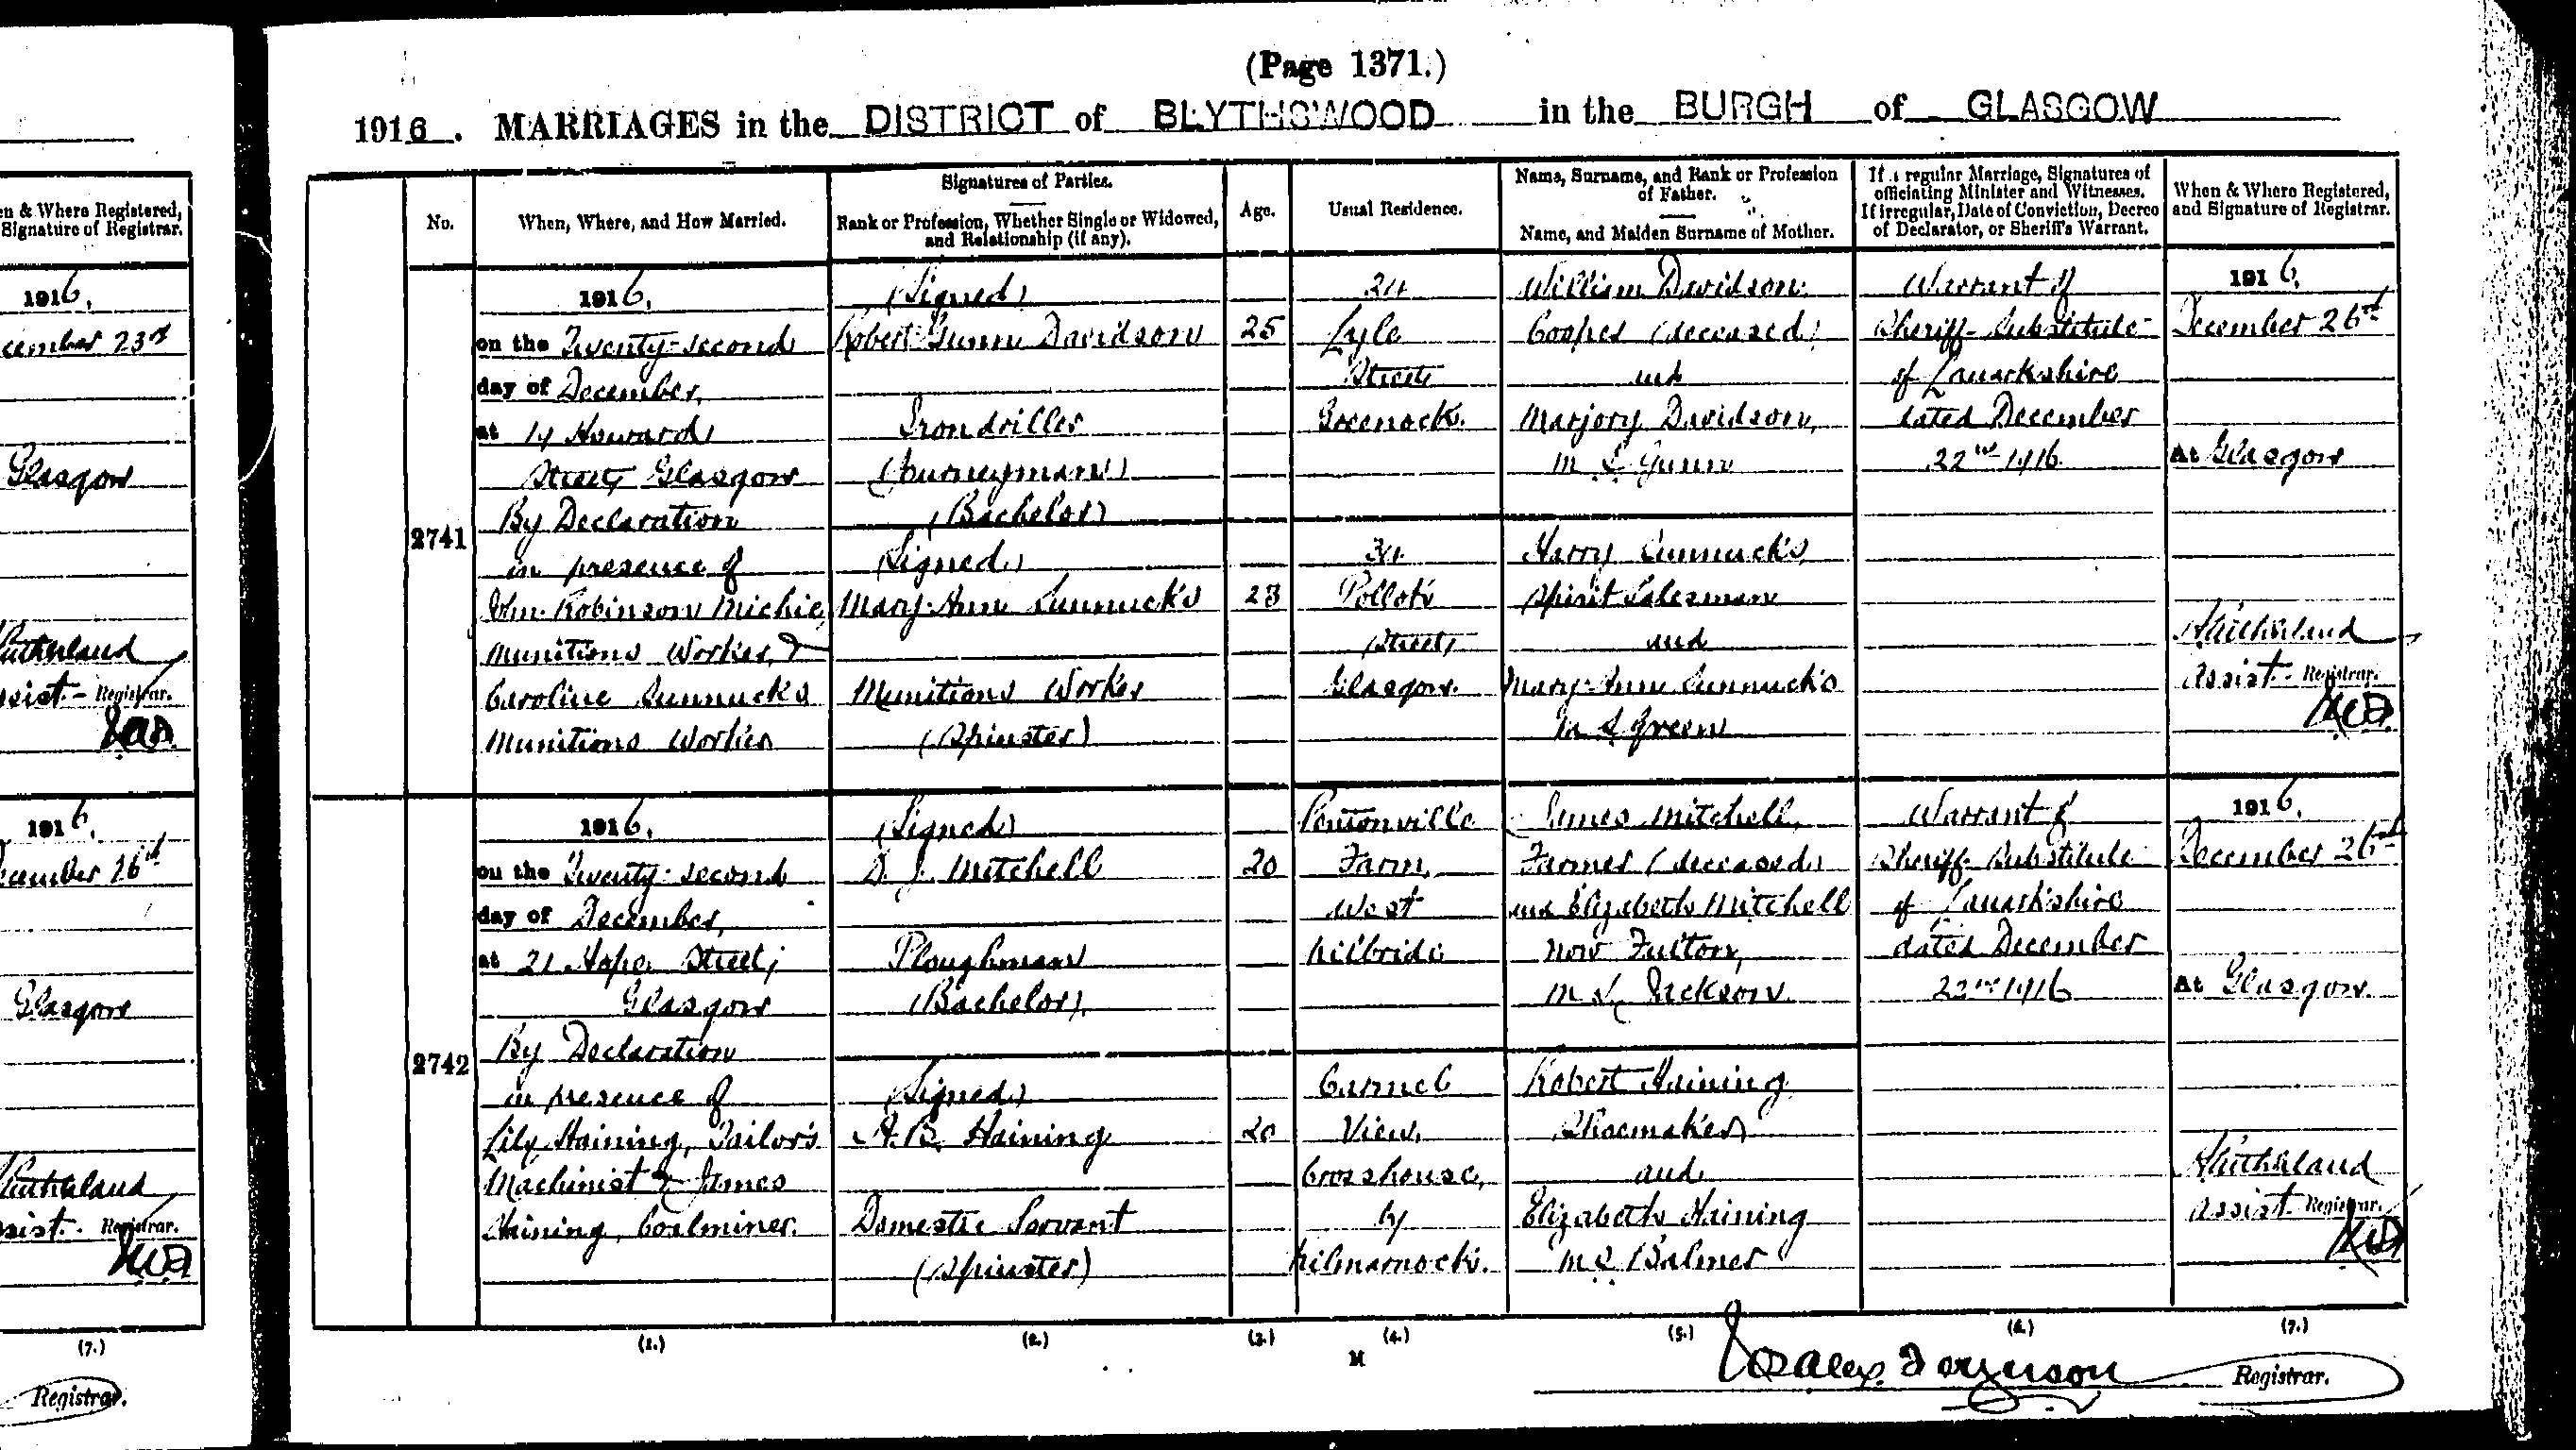 (Page 1371.)
1916. MARRIAGES in the DISTRICT of BLYTHSWOOD in the BURGH of GLASGOW
en & Where Registered,
Signature of Registrar.
1916.
cember 23rd
Glasgow
utherland
ssist- Registrar.
1916.
cember 26th
Glasgow
utherland
sist- Registrar.
(7.)
Registrar.
No.
When, Where, and How Married.
Signatures of Parties.
Rank or Profession, Whether Single or Widowed,
and Relationship (if any).
Age.
Usual Residence.
Name, Surname, and Rank or Profession
of Father.
Name, and Maiden Surname of Mother.
If a regular Marriage, Signatures of
officiating Minister and Witnesses.
If irregular, Date of Conviction, Decree
of Declarator, or Sheriff's Warrant.
When & Where Registered,
and Signature of Registrar.
2741
1916.
on the Twenty-second
day of December,
at 14 Howard
Street, Glasgow
By Declaration
in presence of
John Robinson Michie,
Munitions Worker, &
Caroline Sunnucks
Munitions Worker
(Signed)
Robert Gunn Davidson
Irondriller
(Journeyman)
(Bachelor)
(Signed)
Mary Ann Sunnucks
Munitions Worker
(Spinster)
25
23
24
Lyle
Street
Greenock.
34
Pollok
Street,
Glasgow.
William Davidson
Cooper (deceased)
and
Marjory Davidson,
M.S. Gunn
Harry Sunnucks,
Spirit Salesman
and
Mary Ann Sunnucks
M.S. Green
Warrant of
Sheriff-Substitute
of Lanarkshire
dated December
22nd 1916.
1916.
December 26th
At Glasgow
Sutherland
Assist- Registrar.
2742
1916.
on the Twenty-second
day of December,
at 21 Hope Street,
Glasgow
By Declaration
in presence of
Lily Haining, Tailor's
Machinist & James
Haining, Coalminer.
(Signed)
D. J. Mitchell
Ploughman
(Bachelor)
(Signed)
A. B. Haining
Domestic Servant
(Spinster)
20
20
Pentonville
Farm,
West
Kilbride
Carmel
View,
Crosshouse,
by
Kilmarnock.
James Mitchell,
Farmer (deceased)
and Elizabeth Mitchell
now Fulton,
M.S. Jackson
Robert Haining
Shoemaker
and
Elizabeth Haining
M.S. Balmer
Warrant of
Sheriff-Substitute
of Lanarkshire
dated December
22nd 1916
1916.
December 26th
At Glasgow.
Sutherland
Assist- Registrar.
(1.) (2.) (3.) (4.) (5.) (6.) (7.)
M
Alex. Ferguson Registrar.